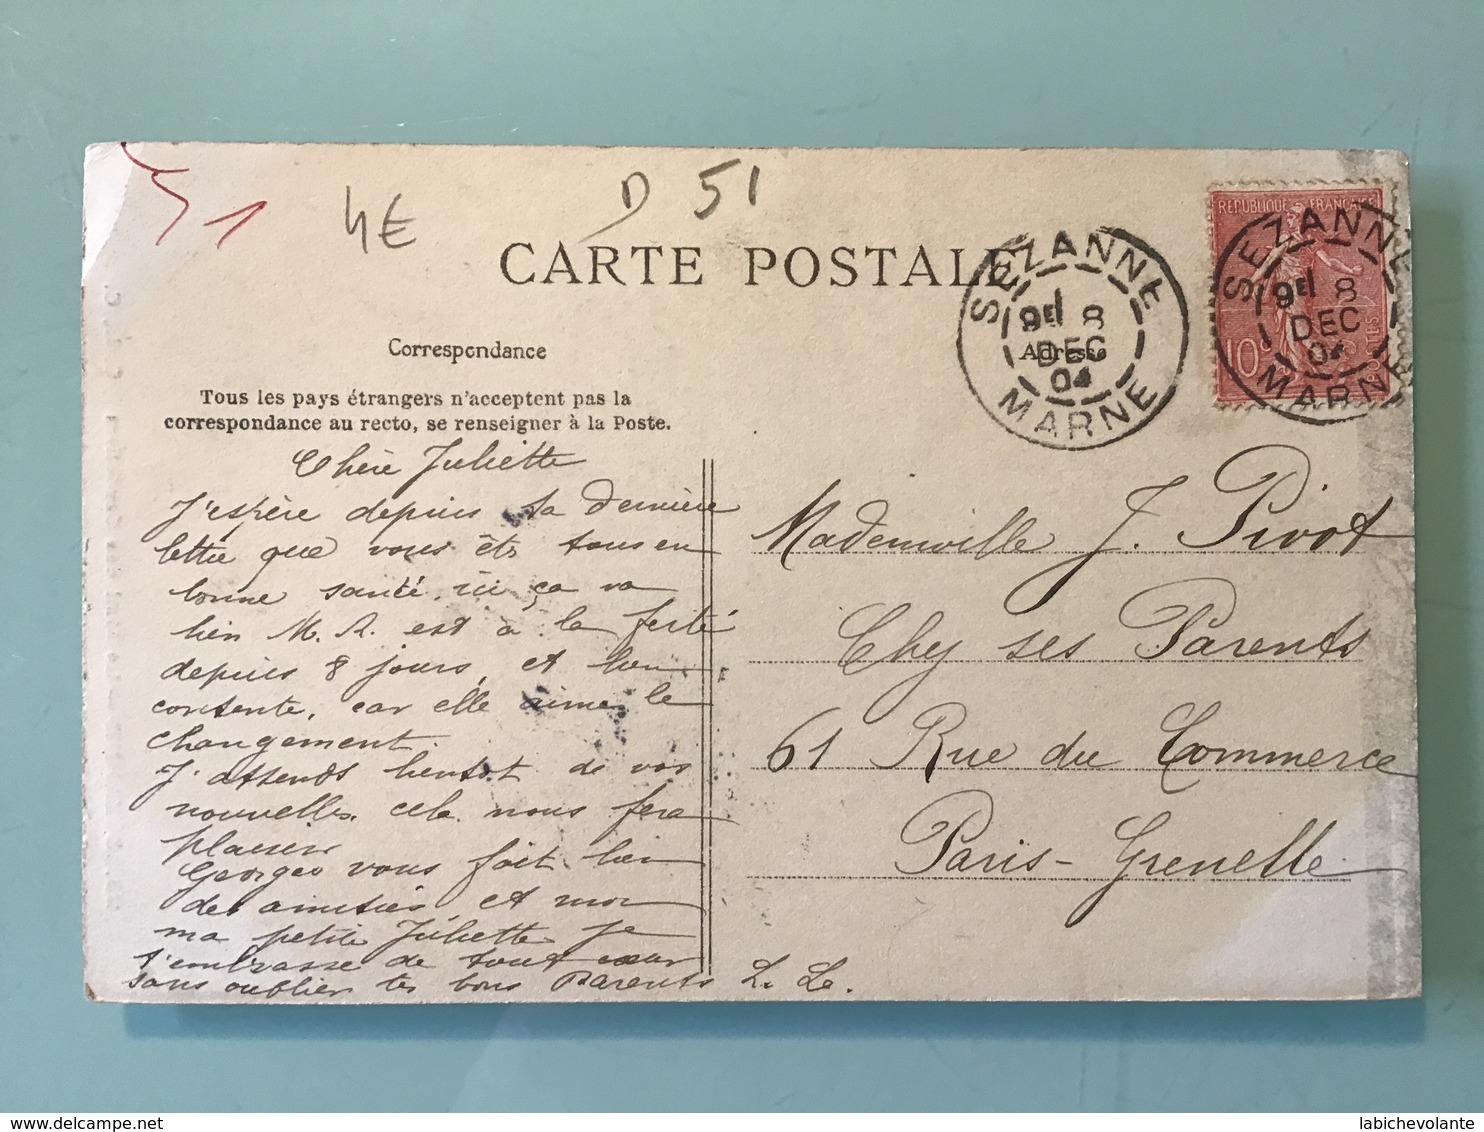 4€
D 51
CARTE POSTALE
Correspondance
Tous les pays étrangers n'acceptent pas la
correspondance au recto, se renseigner à la Poste.
Chère Juliette
J'espère depuis ta dernière
lettre que vous êts tous en
bonne santé, ici ça va
bien M. A. est à la ferté
depuis 8 jours, et bien
contente, car elle aime le
changement.
J'attends bientot de vos
nouvelles cela nous fera
plaisir
Georges vous fait bien
des amitiés et moi
ma petite Juliette je
t'embrasse de tout cœur
sans oublier tes bons Parents L. Le.
SEZANNE
9E1 8
DEC
04
MARNE
Adresse
REPUBLIQUE FRANÇAISE
10c
POSTES
SEZANNE
9E1 8
DEC
04
MARNE
Mademoiselle J. Pivot
Chez ses Parents
61 Rue du Commerce
Paris-Grenelle
www.delcampe.net
labichevolante